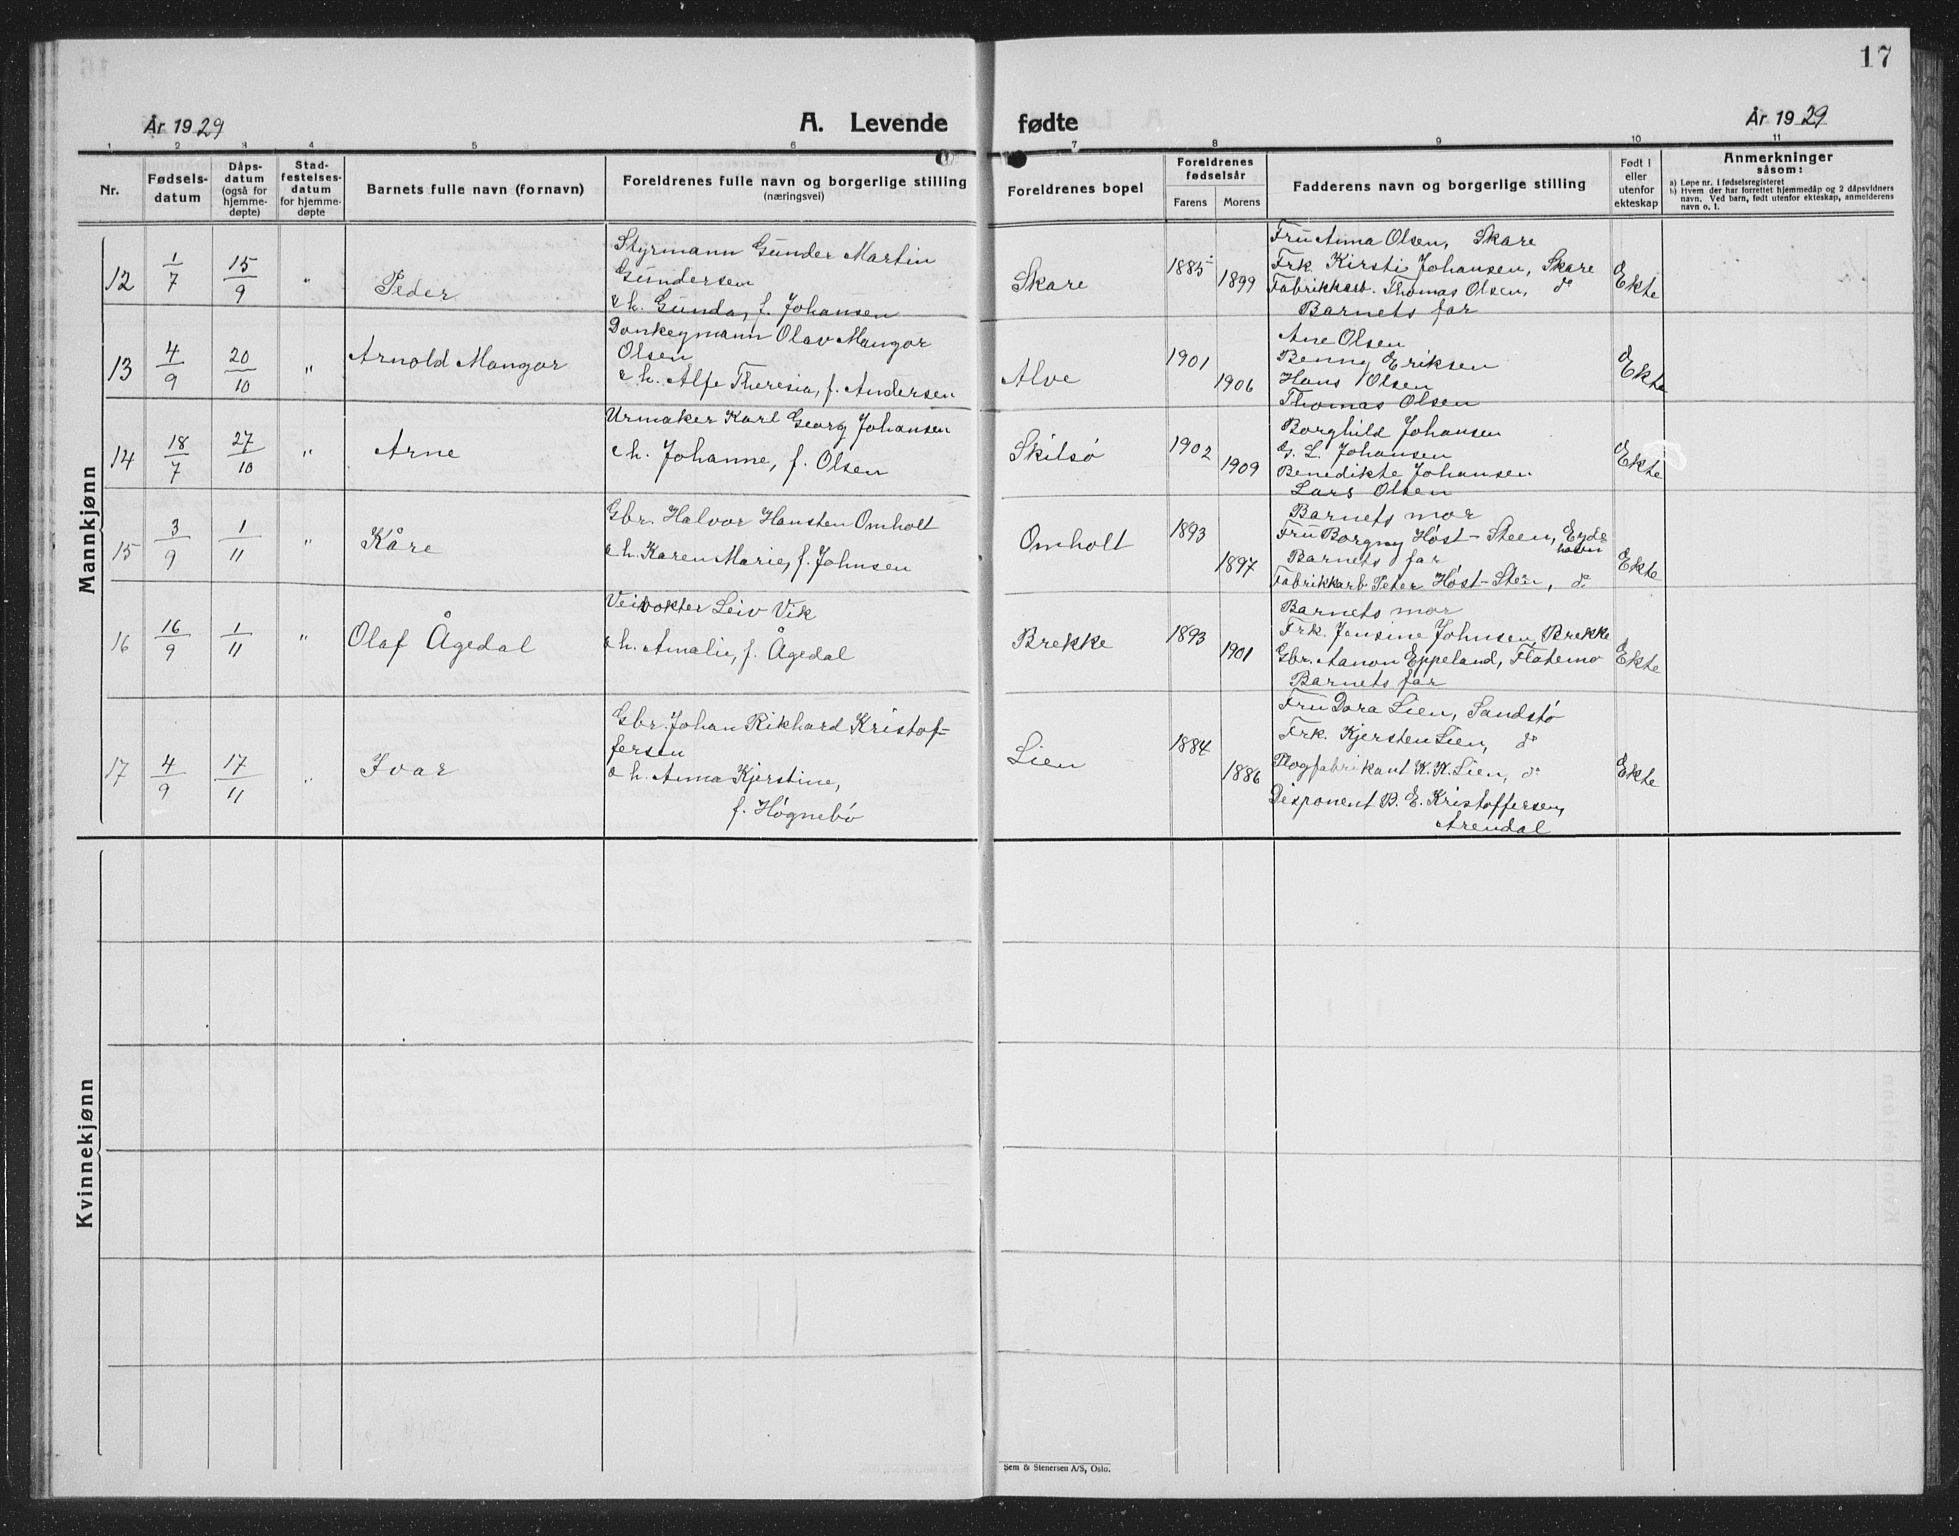 17
År 1929
A. Levende fødte
År 1929
1 2 3 4 5 6 7 8 9 10 11
Nr.
Fødsels-
datum
Dåps-
datum
(også for
hjemme-
døpte)
Stad-
festelses-
datum
for hjemme-
døpte
Barnets fulle navn (fornavn)
Foreldrenes fulle navn og borgerlige stilling
(næringsvei)
Foreldrenes bopel
Foreldrenes
fødselsår
Farens
Morens
Fadderens navn og borgerlige stilling
Født i
eller
utenfor
ekteskap
Anmerkninger
såsom:
a) Løpe nr. i fødselsregisteret
b) Hvem der har forrettet hjemmedåp og 2 dåpsvidners
navn. Ved barn, født utenfor ekteskap, anmelderens
navn o. l.
Mannkjønn
12 1/7 15/9 " Peder
Styrmann Gunder Martin
Gundersen
& h. Gunda, f. Johansen
Skare 1885 1899
Fru Anna Olsen, Skare
Frk. Kirsti Johansen, Skare
Fabrikkarb. Thomas Olsen, do
Barnets far
Ekte
13 4/9 20/10 " Arnold Mangor
Donkeymann Olav Mangor
Olsen
& h. Alfe Theresia, f. Andersen
Alve 1901 1906
Ane Olsen
Benny Eriksen
Hans Olsen
Thomas Olsen
Ekte
14 18/7 27/10 " Arne
Urmaker Karl Georg Johansen
& h. Johanne, f. Olsen
Skilsø 1902 1909
Borghild Johansen
G. L. Johansen
Benedikte Johansen
Lars Olsen
Ekte
15 3/9 1/11 " Kåre
Gbr. Halvor Hansten Omholt
& h. Karen Marie, f. Johnsen
Omholt 1893 1897
Barnets mor
Fru Borgny Høst-Steen, Eyde
havn
Barnets far
Fabrikkarb Peter Høst-Steen, do
Ekte
16 16/9 1/11 " Olaf Ågedal
Veivokter Leiv Vik
& h. Amalie, f. Ågedal
Brekke 1893 1901
Barnets mor
Frk. Jensine Johnsen, Brekke
Gbr. Aanon Eppeland, Flatemo
Barnets far
Ekte
17 4/9 17/11 " Ivar
Gbr. Johan Rikhard Kristof=
fersen
& h. Anna Kjerstine,
f. Høgnebø
Lien 1884 1886
Fru Dora Lien, Sandstø
Frk. Kjersten Lien, do
Plogfabrikant K. K. Lien, do
Disponent B. E. Kristoffersen,
Arendal
Ekte
Kvinnekjønn
Sem & Stenersen A/S, Oslo.